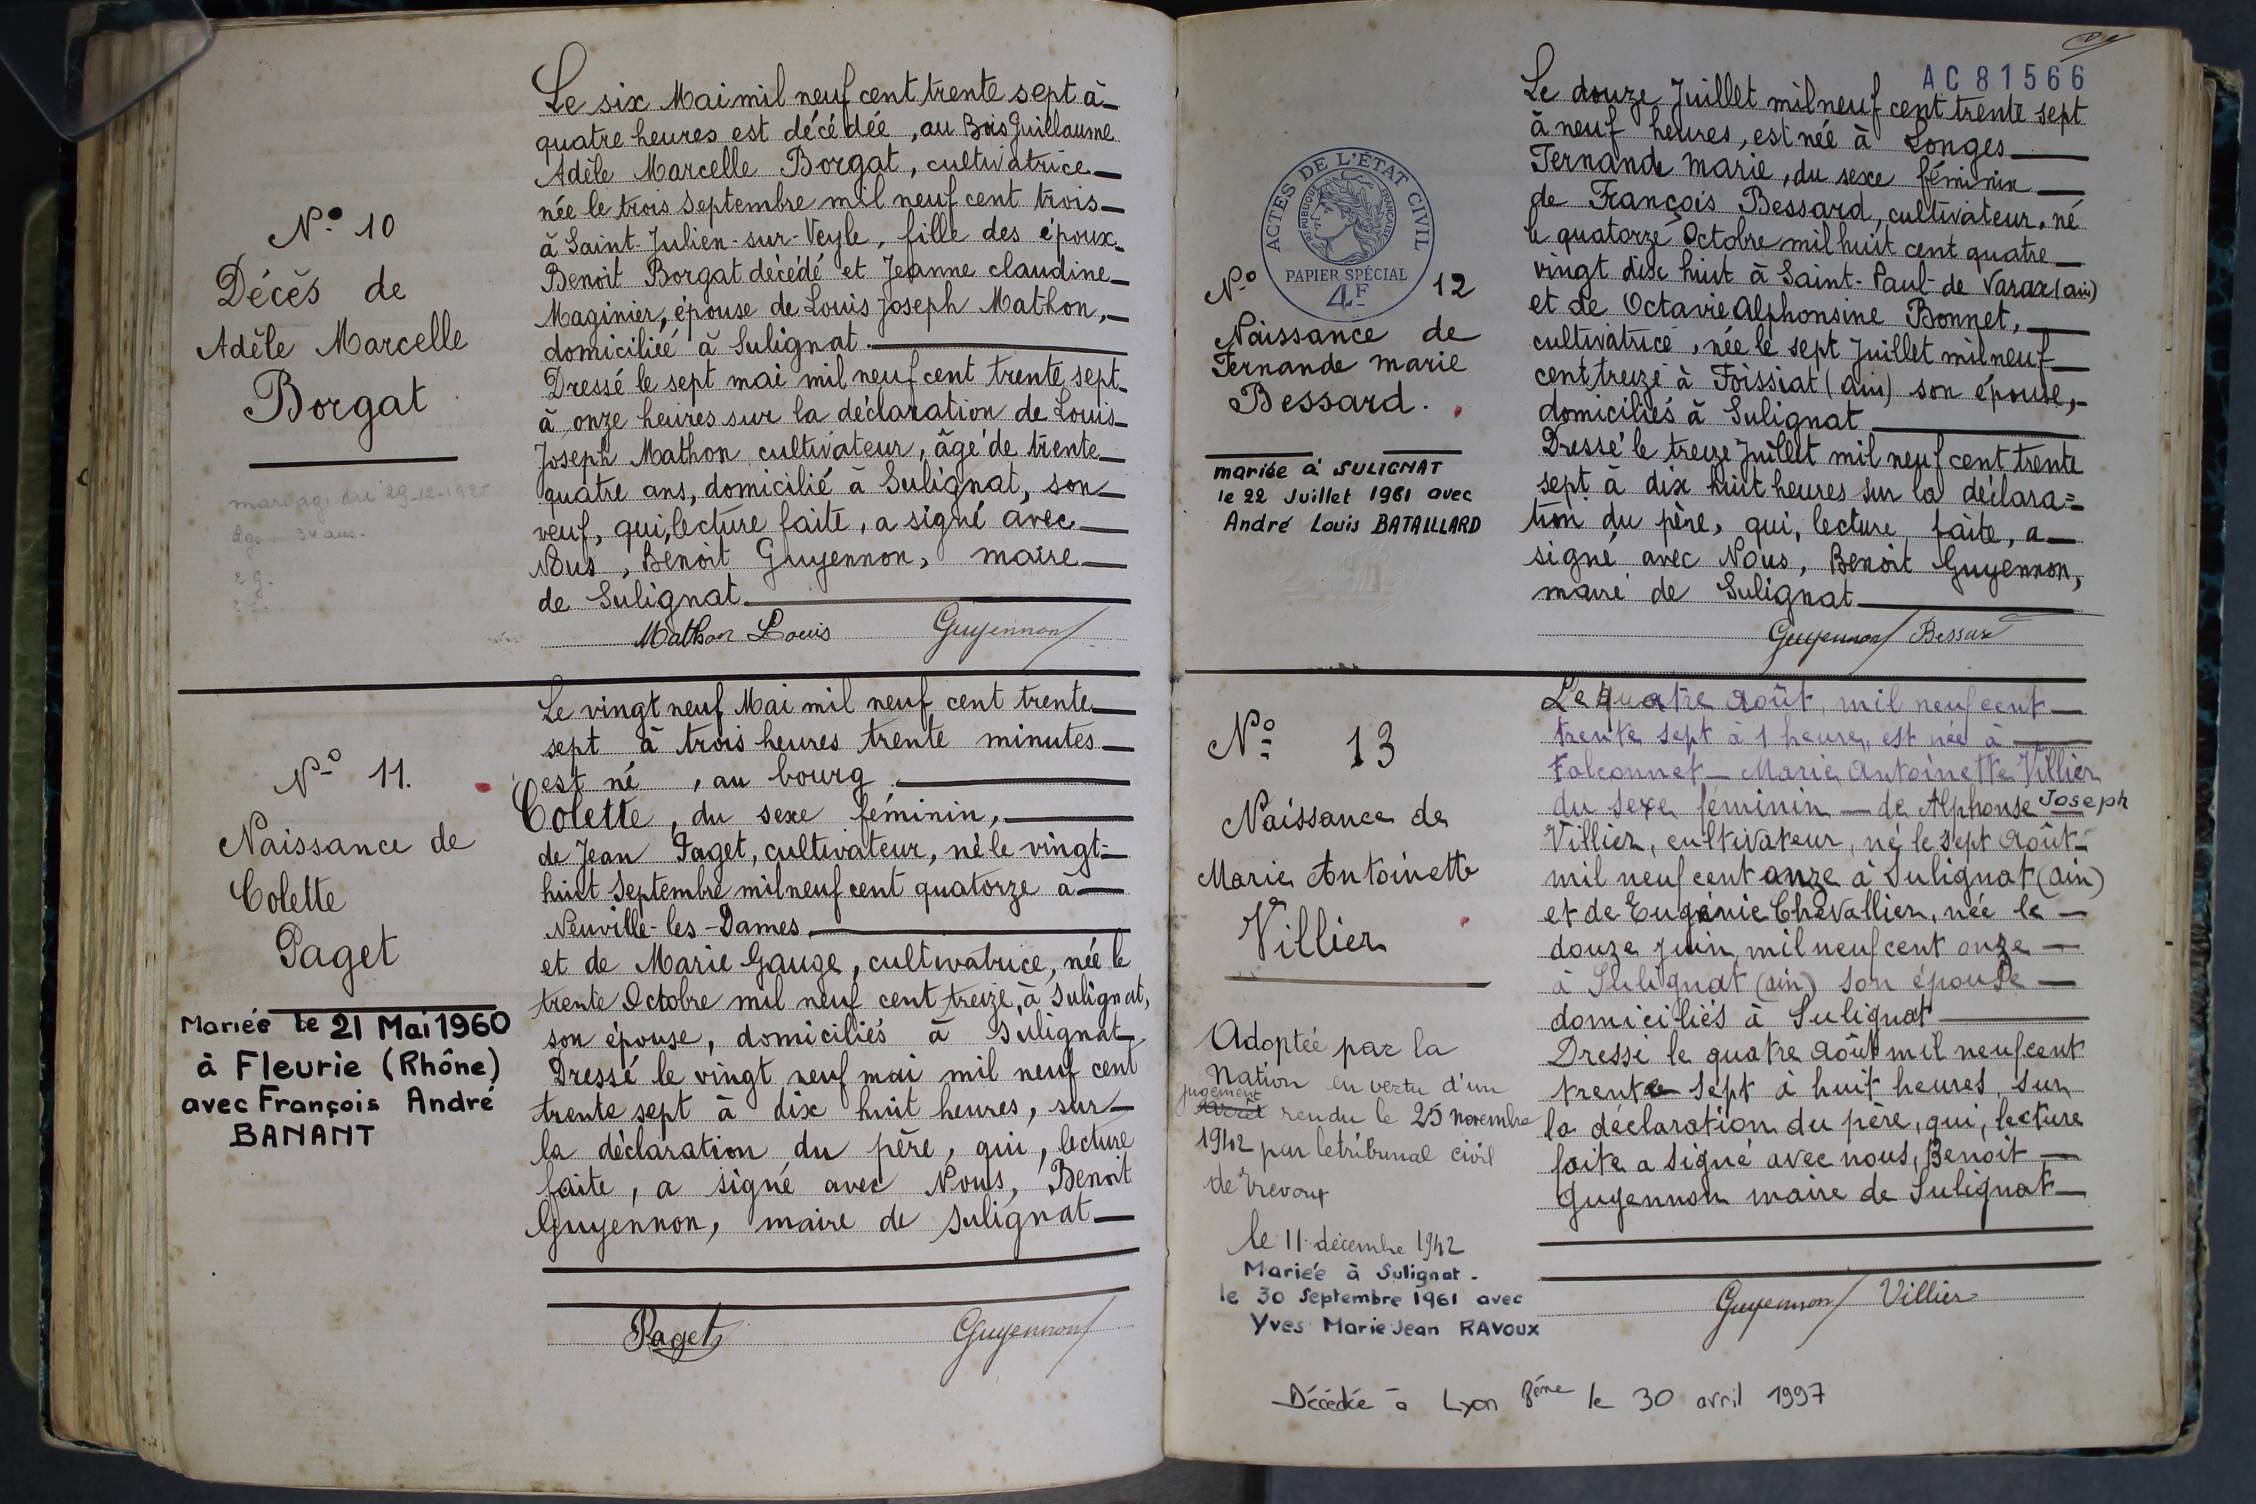 N° 10
Décès de
Adèle Marcelle
Borgat
mariage du 29-12-1925
34 ans.
Le six Mai mil neuf cent trente sept à
quatre heures est décédée, au Bois Guillaume
Adèle Marcelle Borgat, cultivatrice
née le trois Septembre mil neuf cent trois
à Saint-Julien-sur-Veyle, fille des époux
Benoit Borgat décédé et Jeanne claudine
Maginier, épouse de Louis Joseph Mathon,
domiciliée à Sulignat.
Dressé le sept mai mil neuf cent trente sept
à onze heures sur la déclaration de Louis
Joseph Mathon cultivateur, âgé de trente
quatre ans, domicilié à Sulignat, son
veuf, qui, lecture faite, a signé avec
Nous, Benoit Guyennon, maire
de Sulignat
Mathon Louis Guyennon
N° 11.
Naissance de
Colette
Paget
Mariée le 21 Mai 1960
à Fleurie (Rhône)
avec François André
BANANT
Le vingt neuf Mai mil neuf cent trente
sept à trois heures trente minutes
est né , au bourg
Colette, du sexe féminin,
de Jean Paget, cultivateur, né le vingt-
huit Septembre mil neuf cent quatorze à
Neuville-les-Dames,
et de Marie Gauge, cultivatrice, née le
trente Octobre mil neuf cent treize, à Sulignat,
son épouse, domiciliés à Sulignat
Dressé le vingt neuf mai mil neuf cent
trente sept à dix huit heures, sur
la déclaration du père, qui, lecture
faite, a signé avec Nous, Benoit
Guyennon, maire de Sulignat
Paget Guyennon
AC 81566
ACTES DE L'ÉTAT CIVIL
RÉPUBLIQUE FRANÇAISE
PAPIER SPÉCIAL
4F
N° 12
Naissance de
Fernande marie
Bessard.
mariée à SULIGNAT
le 22 Juillet 1961 avec
André Louis BATAILLARD
Le douze Juillet mil neuf cent trente sept
à neuf heures, est née à Longes
Fernande Marie, du sexe féminin
de François Bessard, cultivateur, né
le quatorze Octobre mil huit cent quatre
vingt dix huit à Saint-Paul-de Varax (ain)
et de Octavie Alphonsine Bonnet,
cultivatrice, née le sept Juillet mil neuf
cent treize à Foissiat (ain) son épouse,
domiciliés à Sulignat
Dressé le treize Juillet mil neuf cent trente
sept à dix huit heures sur la déclara=
tion du père, qui, lecture faite, a
signé avec Nous, Benoit Guyennon,
maire de Sulignat
Guyennon Bessard
N° 13
Naissance de
Marie Antoinette
Villier
Adoptée par la
Nation en vertu d'un
jugement
rendu le 25 novembre
1942 par le tribunal civil
de Trevoux
le 11 décembre 1942
Mariée à Sulignat.
le 30 Septembre 1961 avec
Yves Marie Jean RAVOUX
Le quatre Août mil neuf cent
trente sept à 1 heure, est née à
Falconnet Marie Antoinette Villier
du sexe féminin de Alphonse Joseph
Villier, cultivateur, né le sept Août
mil neuf cent onze à Sulignat (ain)
et de Eugénie Chevallier, née le
douze juin mil neuf cent onze
à Sulignat (ain) son épouse
domiciliés à Sulignat
Dressé le quatre Août mil neuf cent
trente sept à huit heures, sur
la déclaration du père, qui, lecture
faite a signé avec nous, Benoit
Guyennon maire de Sulignat
Guyennon Villier
Décédée à Lyon 8ème le 30 avril 1997